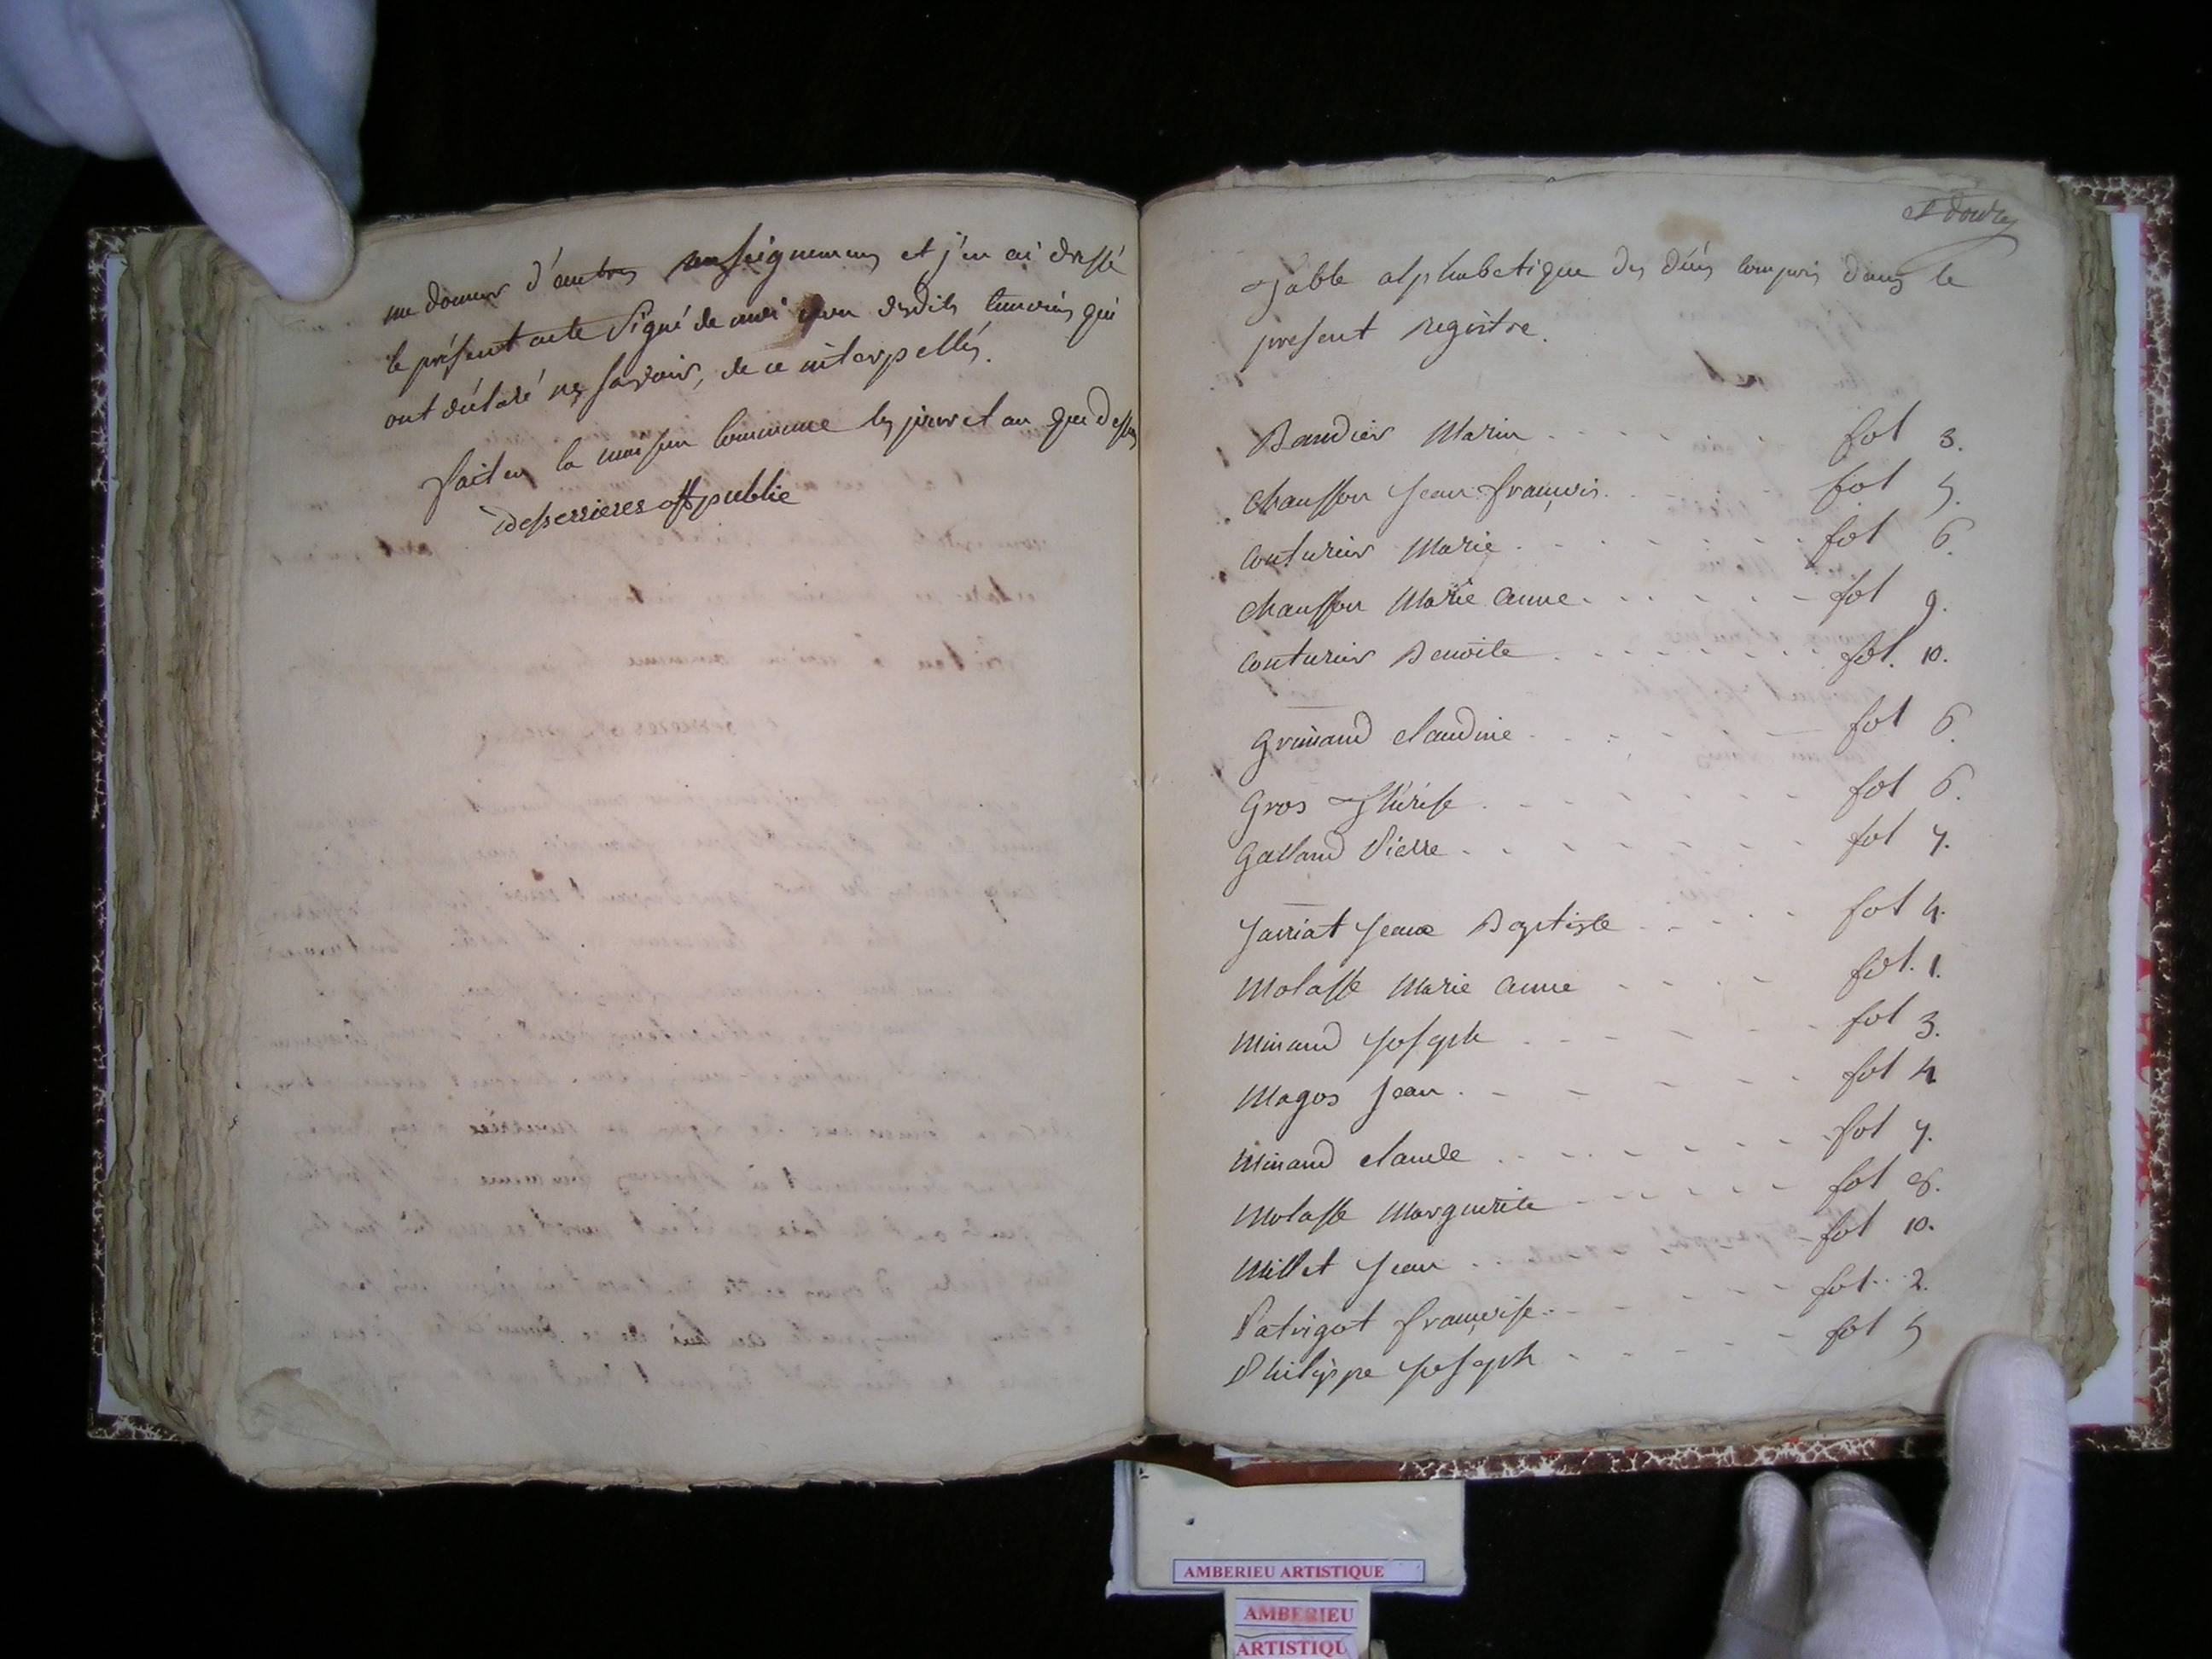 me donner d'autres renseignemens et j'en ai dressé
le présent acte signé de moi non desdits temoins qui
ont déclaré ne savoir, de ce interpellés.
fait en la maison commune les jour et an que dessus
Desserrieres off publie
Table alphabetique des décés compris dans le
present registre.
Baudier Marin fol 3.
Chausson Jean françois fol 5.
Couturier Marie fol 6.
Chausson Marie Anne fol 9.
Couturier Benoite fol. 10.
Grimaud Claudine fol 6.
Gros Thérèse fol 6.
Galland Pierre fol 7.
Jarriat Jean Baptiste fol 4.
Molasse Marie Anne fol. 1.
Minand Joseph fol 3.
Magos Jean fol 4
Minand Claude fol 7.
Molasse Marguerite fol 8.
Millet Jean fol 10.
Patrigot françoise fol 2.
Philippe Joseph fol 5
AMBERIEU ARTISTIQUE
AMBERIEU
ARTISTIQU